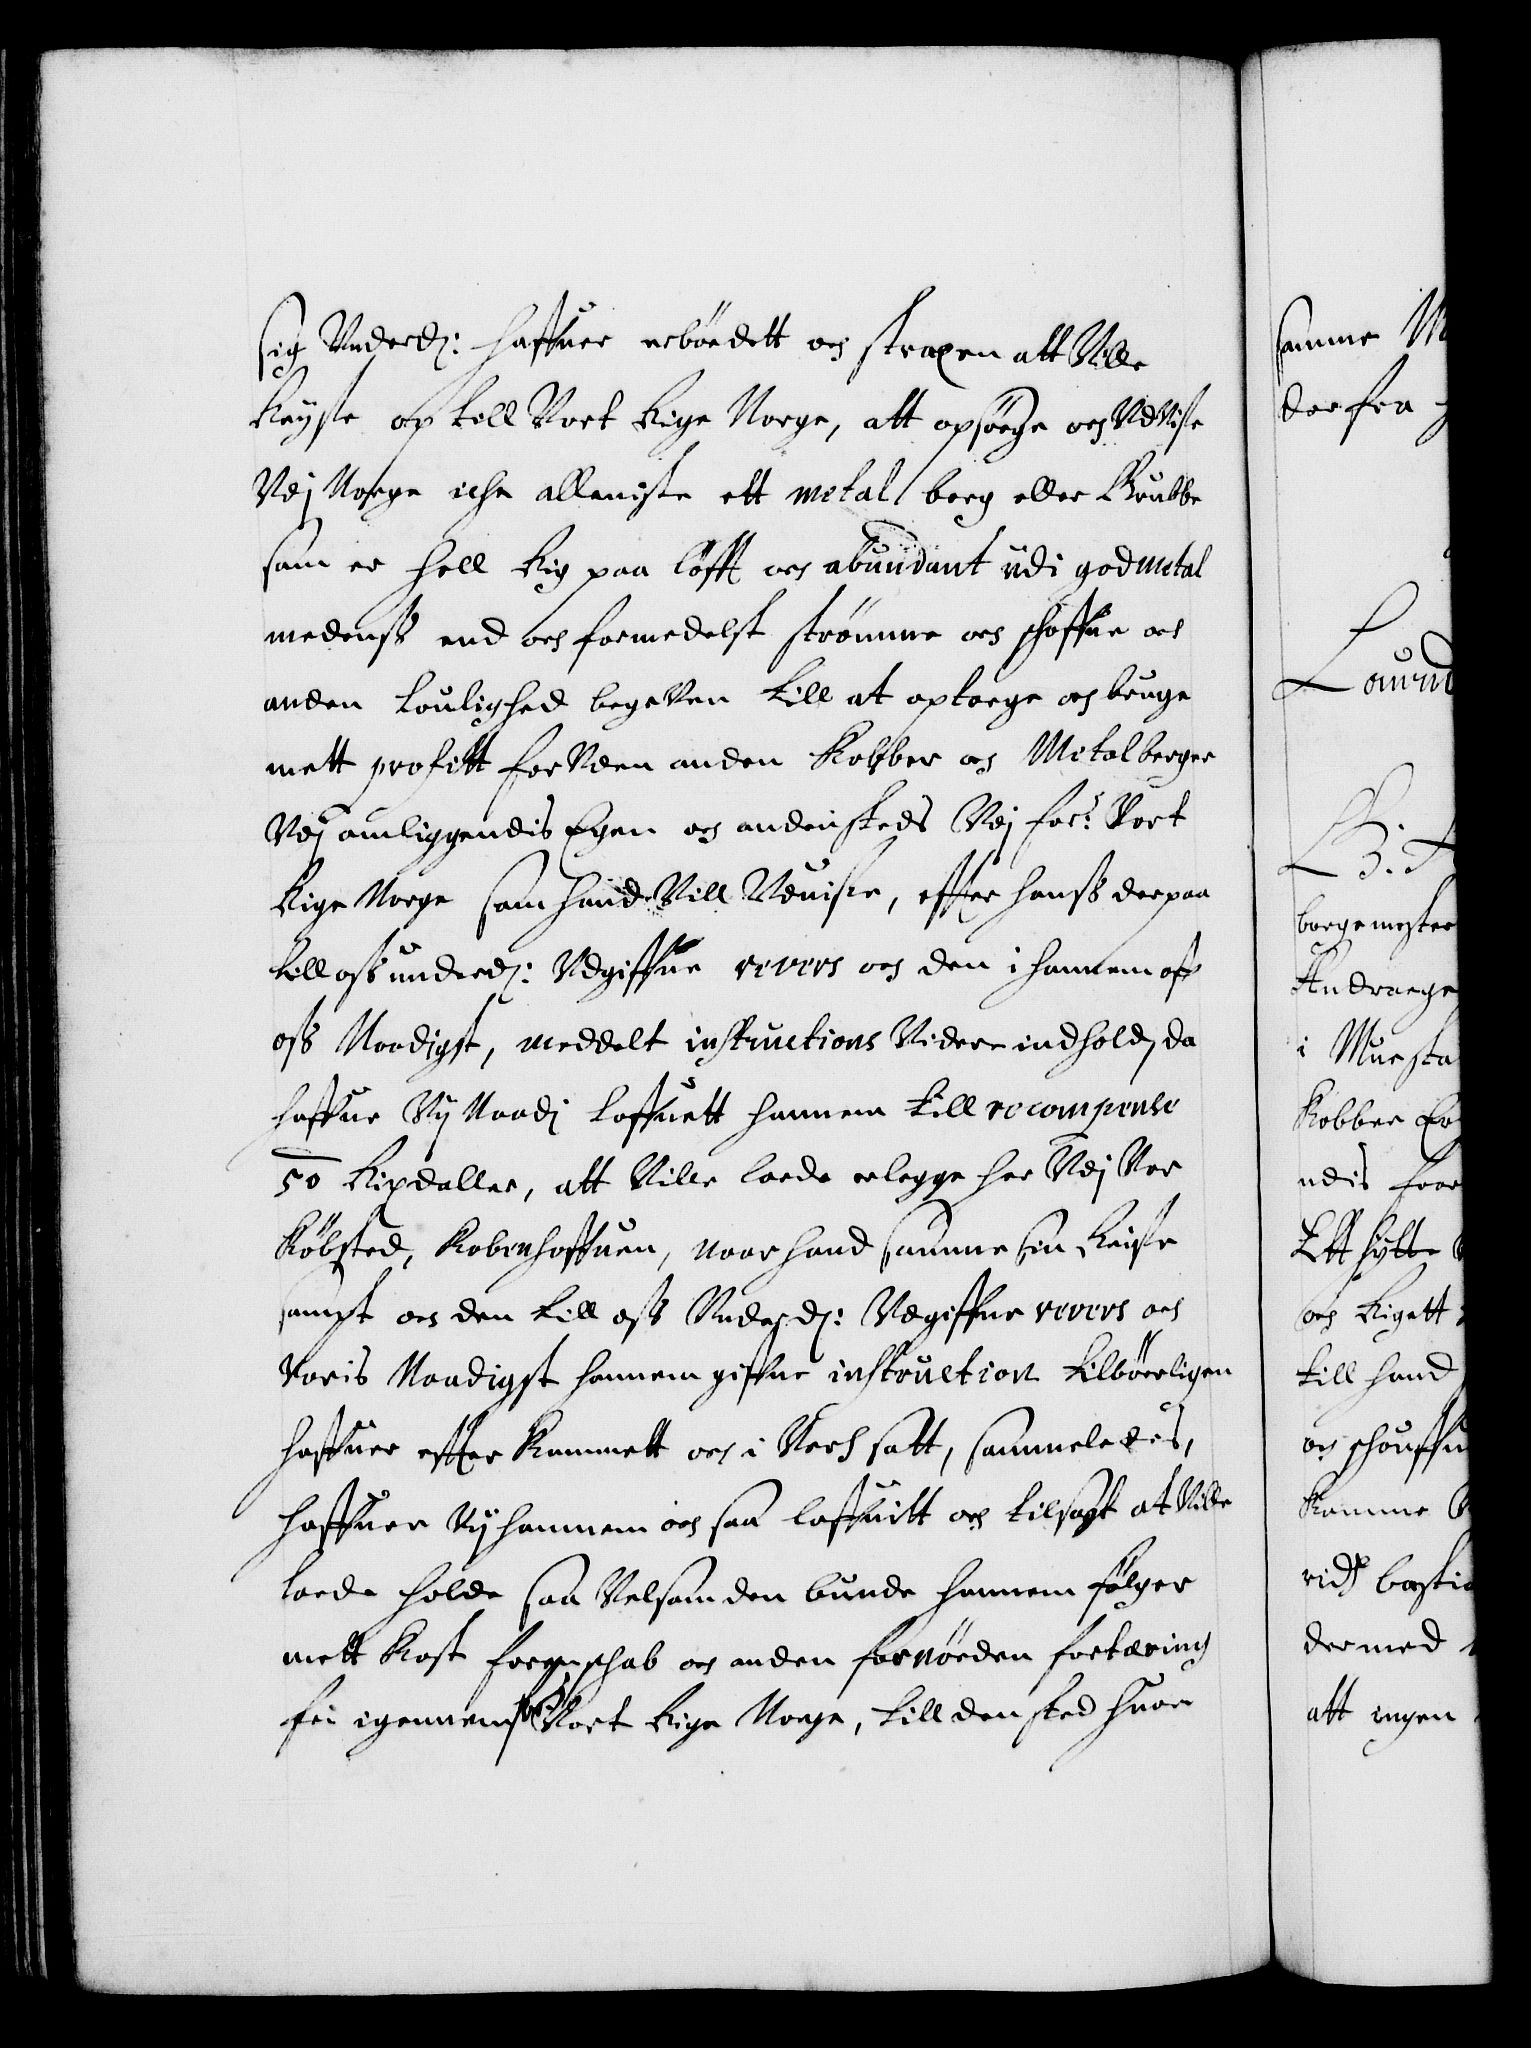 sig Underd: haffuer erböedett och straxen att Ville
Reyse op till Vort Rige Norge, att opsöege och UdVise
Udj Norge iche alleniste ett metal berg eller Grubbe
som er hell Rig paa löfft och abundant udi god metal
medenss end och formedelst strömme och schoffue och
anden Leylighed begeven till at optaege och bruge
mett profitt for Uden anden Kobber och Metal berger
Udj omliggendis Egen och andensteds Udj for: Vort
Rige Norge som hand Vill Udvise, effter hanss derpaa
till oss underd: Udgiffue revers och den i hannem aff
oss Naadigst, meddelt instructions Videre indhold, da
haffue Vij Naadj loffuett hannem till recompense
50 Rixdaller, att Ville laede erlegge her Udj Vor
Köbsted, Kobenhaffuen, naar hand samme sin Reise
sampt och den till oss Underd: Udgiffue revers och
Voris Naadigst hannem giffne instruction tilbörligen
haffuer effter kommett och i Verch satt, sammeledis,
haffuer Vij hannem och saa loffuitt och tilsagt at Ville
laede holde saa Velsom den bunde hannem fölger
mett Kost forgenschab och anden fornöeden fortæring
fri igennem Vort Rige Norge, till den sted huor
samme
der fra
Laurid
G. A.
borgemester
Andraege
i
Kobber
ndis
Ett hytte
och Rigett
till hand
och schouffu
komme
ridX bastia
dermed
att ingen